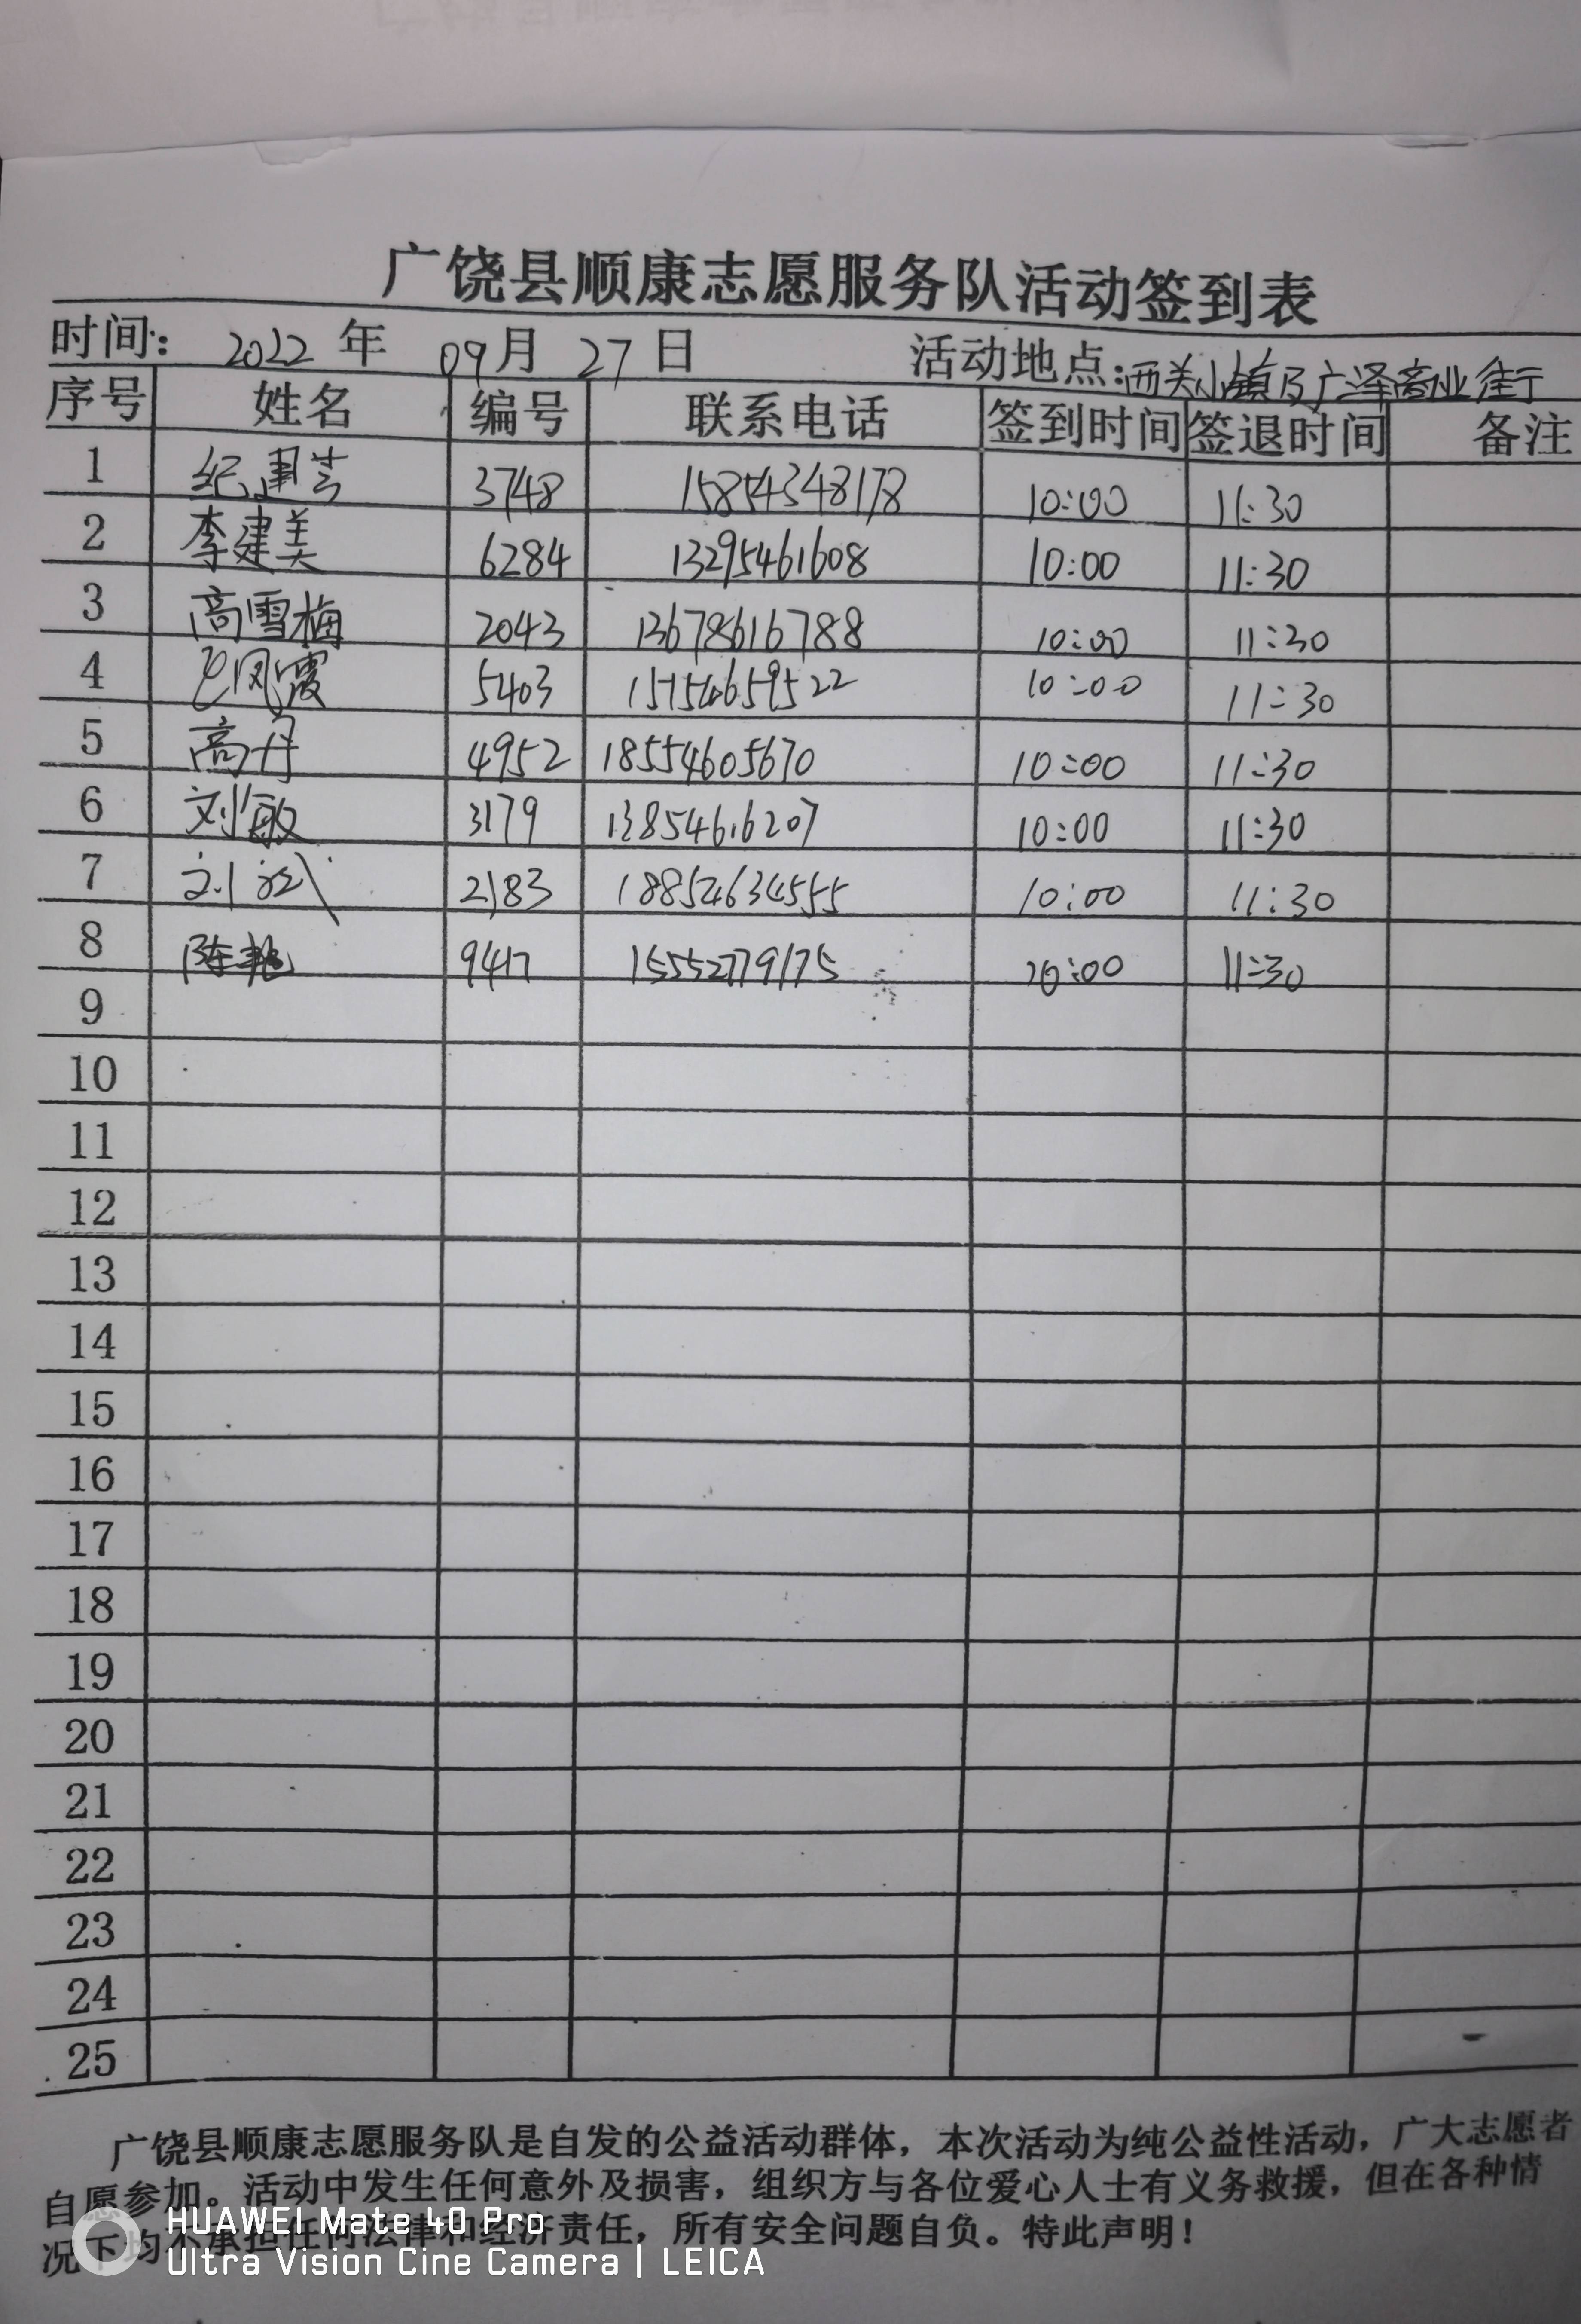 广饶县顺康志愿服务队活动签到表
时间: 2022 年 09 月 27 日 活动地点:西关小镇及广泽商业街
序号 姓名 编号 联系电话 签到时间 签退时间 备注
1 纪建芳 3748 15854348178 10:00 11:30
2 李建美 6284 13295461608 10:00 11:30
3 高雪梅 2043 13678616788 10:00 11:30
4 凤霞 5403 15754659522 10:00 11:30
5 高丹 4952 18554605670 10:00 11:30
6 刘敏 3179 13854616207 10:00 11:30
7 刘 2183 18854634555 10:00 11:30
8 陈艳 9417 15552779175 10:00 11:30
9
10
11
12
13
14
15
16
17
18
19
20
21
22
23
24
25
广饶县顺康志愿服务队是自发的公益活动群体，本次活动为纯公益性活动，广大志愿者
自愿参加。活动中发生任何意外及损害，组织方与各位爱心人士有义务救援，但在各种情
况下均不承担任何法律和经济责任，所有安全问题自负。特此声明！
HUAWEI Mate 40 Pro
Ultra Vision Cine Camera | LEICA